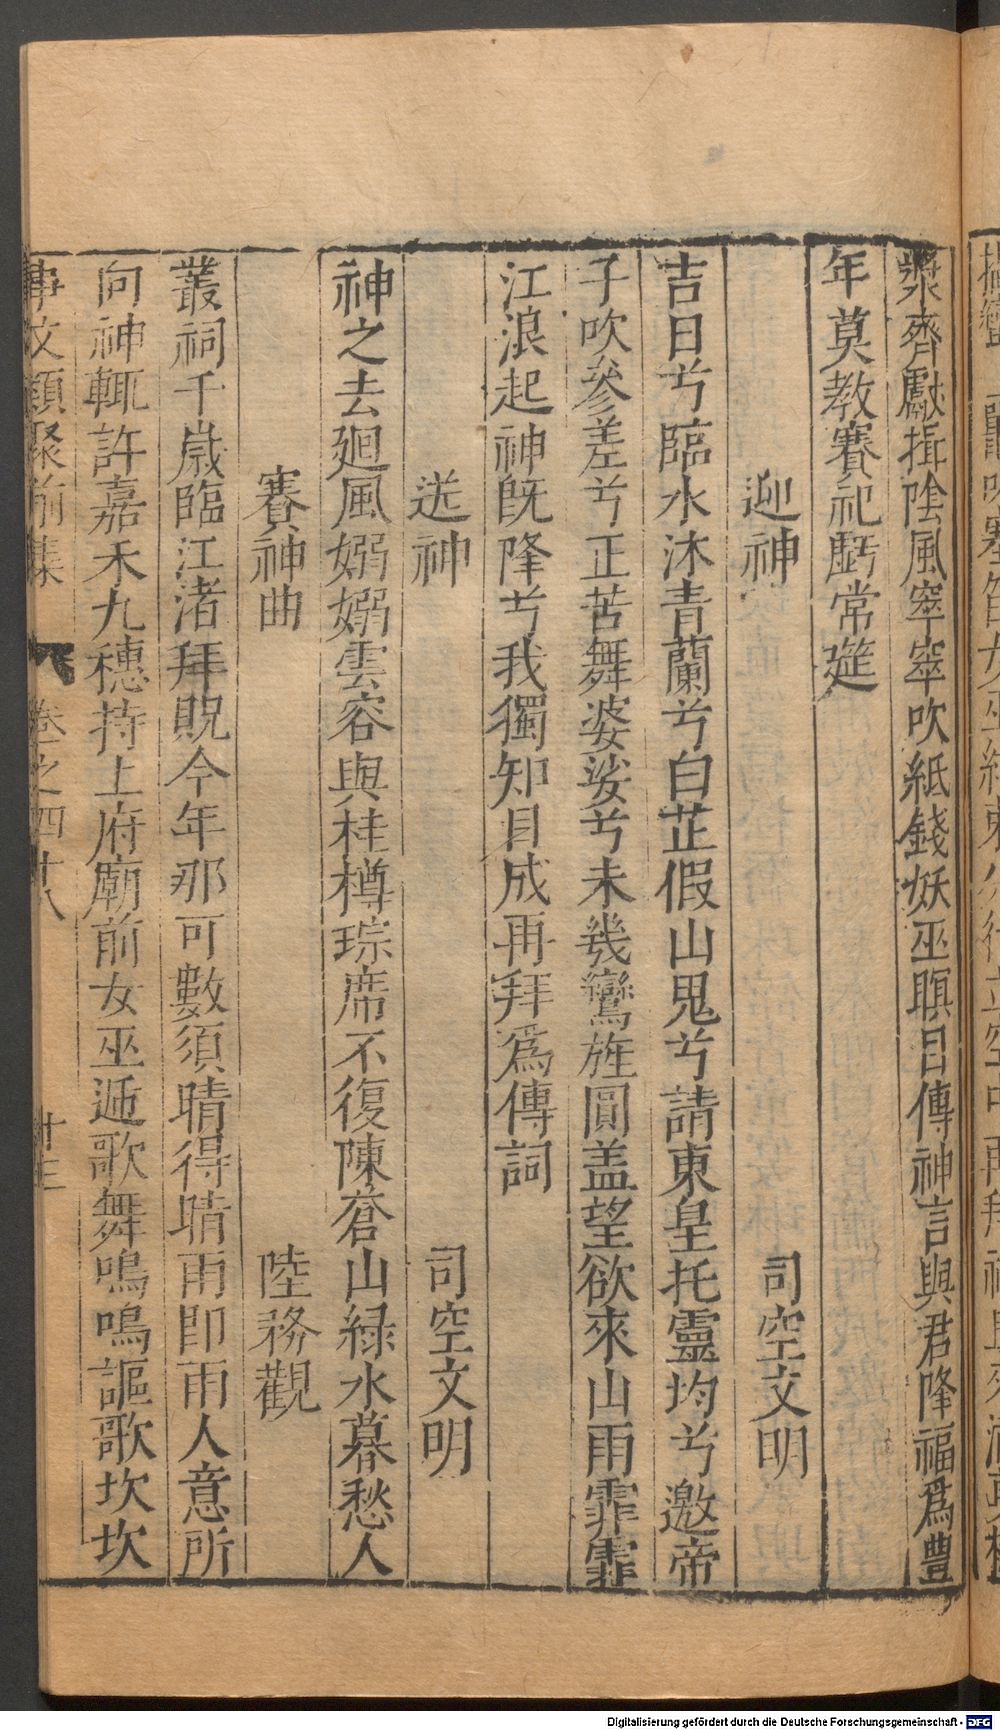 漿齊獻揖陰風窣窣吹紙錢妖巫瞑目傳神言與君降福爲豊
年莫教賽祀虧常筵
迎神 司空文明
吉日兮臨水沐青蘭兮白芷假山鬼兮請東皇托靈均兮邀帝
子吹參差兮正苦舞婆娑兮未幾鸞旌圓盖望欲來山雨霏霏
江浪起神旣降兮我獨知目成再拜爲傳詞
送神 司空文明
神之去廻風嫋嫋雲容與桂樽琮席不復陳蒼山緑水暮愁人
賽神曲 陸務觀
叢祠千歲臨江渚拜貺今年那可數須晴得晴雨即雨人意所
向神輒許嘉禾九穗持上府廟前女巫遁歌舞嗚嗚謳歌坎坎
事文類聚前集 卷之四十八 廿三
Digitalisierung gefördert durch die Deutsche Forschungsgemeinschaft - DFG